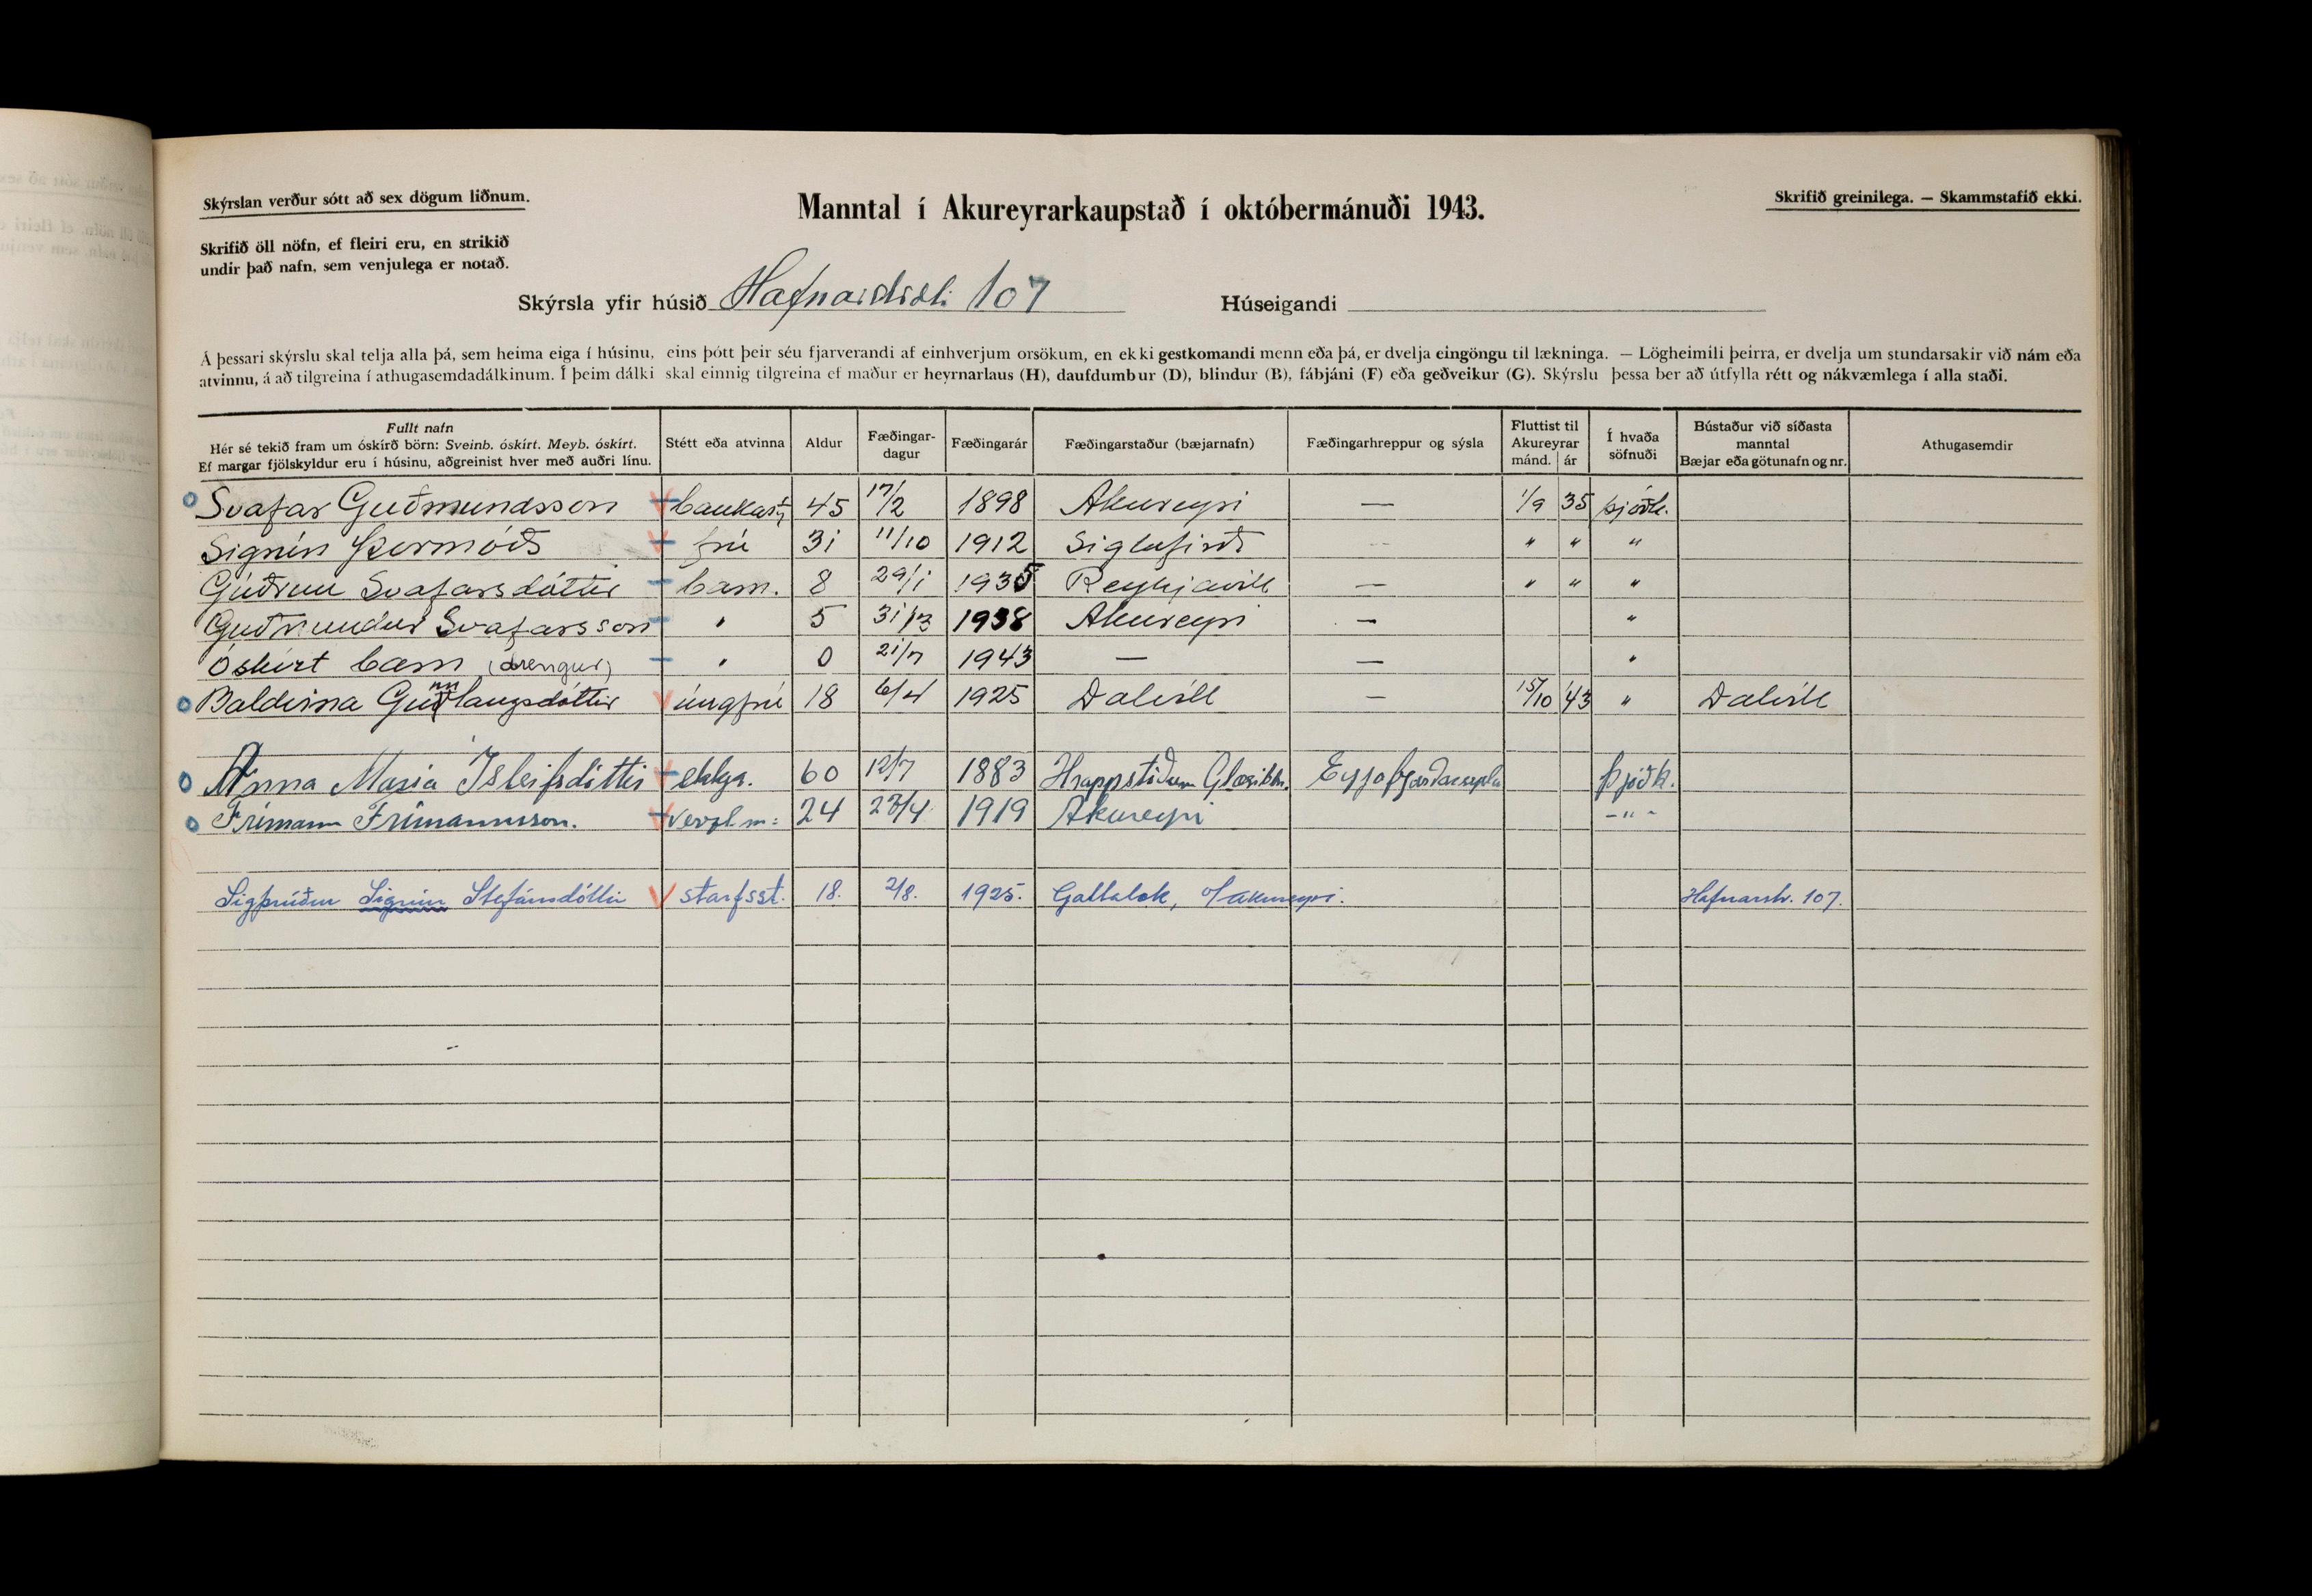 Skýrslan verður sótt að sex dögum liðnum.
Manntal í Akureyrarkaupstað í októbermánuði 1943.
Skrifið greinilega. — Skammstafið ekki.
Skrifið öll nöfn, ef fleiri eru, en strikið
undir það nafn, sem venjulega er notað.
Skýrsla yfir húsið Hafnarstræti 107 Húseigandi
Á þessari skýrslu skal telja alla þá, sem heima eiga í húsinu, eins þótt þeir séu fjarverandi af einhverjum orsökum, en ekki gestkomandi menn eða þá, er dvelja eingöngu til lækninga. — Lögheimili þeirra, er dvelja um stundarsakir við nám eða
atvinnu, á að tilgreina í athugasemdadálkinum. Í þeim dálki skal einnig tilgreina ef maður er heyrnarlaus (H), daufdumbur (D), blindur (B), fábjáni (F) eða geðveikur (G). Skýrslu þessa ber að útfylla rétt og nákvæmlega í alla staði.
Fullt nafn
Hér sé tekið fram um óskírð börn: Sveinb. óskírt. Meyb. óskírt.
Ef margar fjölskyldur eru í húsinu, aðgreinist hver með auðri línu.
Stétt eða atvinna
Aldur
Fæðingar-
dagur
Fæðingarár
Fæðingarstaður (bæjarnafn)
Fæðingarhreppur og sýsla
Fluttist til
Akureyrar
mánd. ár
Í hvaða
söfnuði
Bústaður við síðasta
manntal
Bæjar eða götunafn og nr.
Athugasemdir
Svafar Guðmundsson bankastj 45 17/2 1898 Akureyri — 1/9 35 þjóðk.
Sigrún Þormóðs frú 31 11/10 1912 Siglufirði -- " " "
Guðrun Svafarsdóttir barn. 8 29/1 1935 Reykjavik — " " "
Guðmundur Svafarsson " 5 31/3 1938 Akureyri — "
Óskírt barn (drengur) " 0 21/7 1943 — — "
Baldvina Gunnlaugsdóttir úngfrú 18 6/4 1925 Dalvik — 15/10 43 " Dalvik
Anna Maria Ísleifsdóttir ekkja. 60 12/7 1883 Hrappstöðum Glæsibhr. Eyjafjarðarsýsla þjóðk.
Frímann Frímannsson. verzl.m: 24 23/4 1919 Akureyri -"-
Sigþrúður Sigrún Stefánsdóttir starfsst. 18. 2/8. 1925. Gattalæk, o/ Akureyri. Hafnarstr. 107.